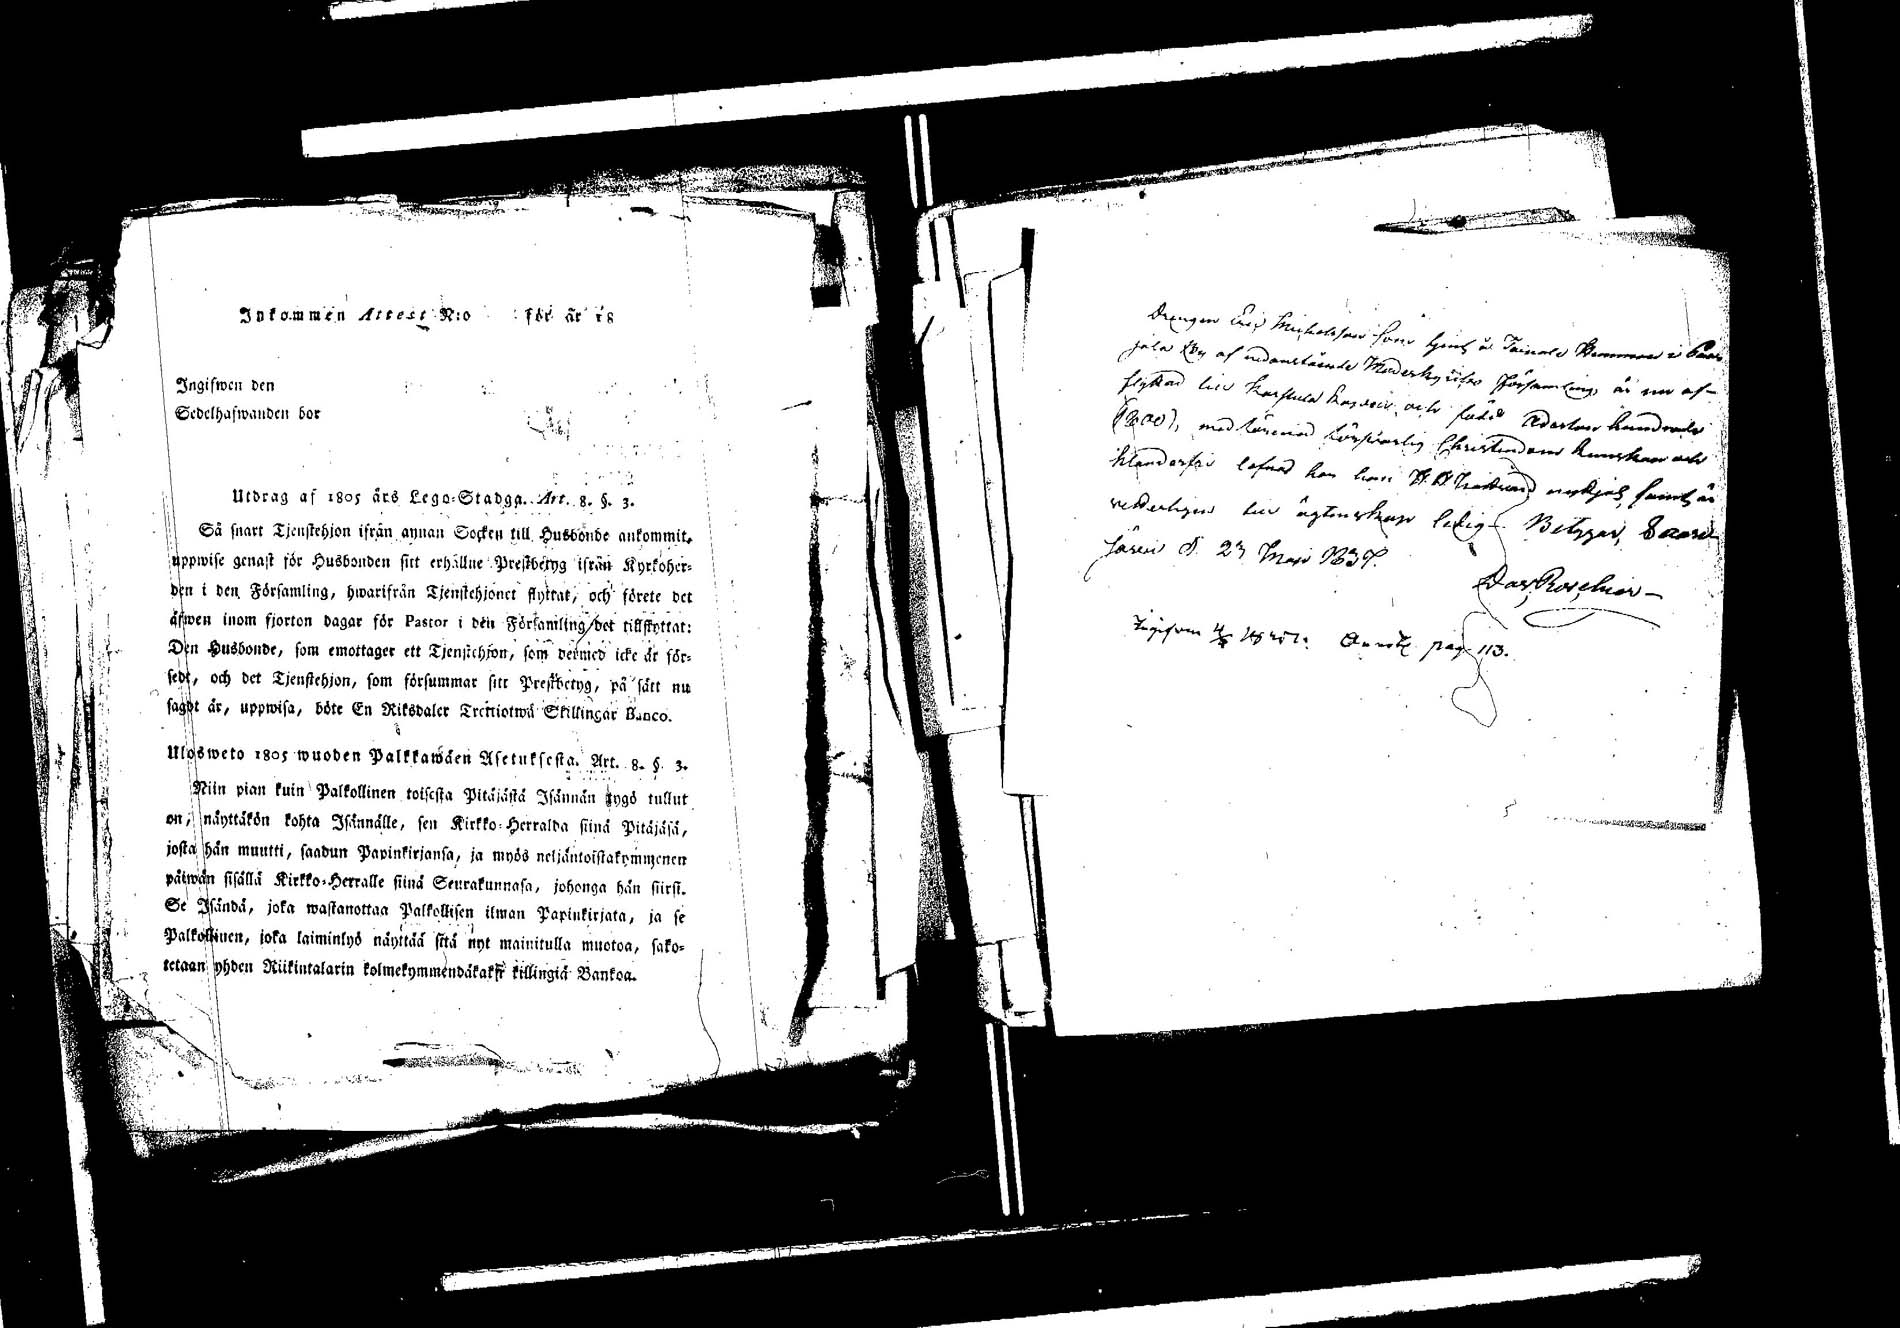 Inkommen Attest N:o för år 18
Ingifwen den
Sedelhafwanden bor
Utdrag af 1805 års Lego-Stadga. Art. 8. §. 3.
Så snart Tjenstehjon ifrån annan Socken till Husbonde ankommit,
uppwise genast för Husbonden sitt erhållne Prestbetyg ifrån Kyrkoher-
den i den Församling, hwarifrån Tjenstehjonet flyttat, och förete det
äfwen inom fjorton dagar för Pastor i den Församling det tillflyttat:
Den Husbonde, som emottager ett Tjenstehjon, som dermed icke är för-
sedt, och det Tjenstehjon, som försummar sitt Prestbetyg, på sätt nu
sagdt är, uppwisa, böte En Riksdaler Trettiotwå Skillingar Banco.
Ulosweto 1805 wuoden Palkkawäen Asetuksesta. Art. 8. §. 3.
Niin pian kuin Palkollinen toisesta Pitäjästä Isännän tygö tullut
on, näyttäkön kohta Isännälle, sen Kirkko-Herralda siinä Pitäjäsä,
josta hän muutti, saadun Papinkirjansa, ja myös neljäntoistakymmenen
päiwän sisällä Kirkko-Herralle siinä Seurakunnasa, johonga hän siirsi.
Se Isändä, joka wastanottaa Palkollisen ilman Papinkirjata, ja se
Palkollinen, joka laiminlyö näyttää sitä nyt mainitulla muotoa, sako-
tetaan yhden Riikintalarin kolmekymmendäkaksi killingiä Bankoa.
Drengen Eric Michelsson som tjent å Hemman i
jala By af nedanstående Moderkyrko församling är nu af-
flyttad till Karstula och född Aderton hundrade
(1800), med Christendoms kunskap och
klanderfri lefnad har han H. H. Nattvard samt är
till ägtenskap ledig. Betygar, Saari-
järvi d. 23 Maji
Roschier
pag. 113.